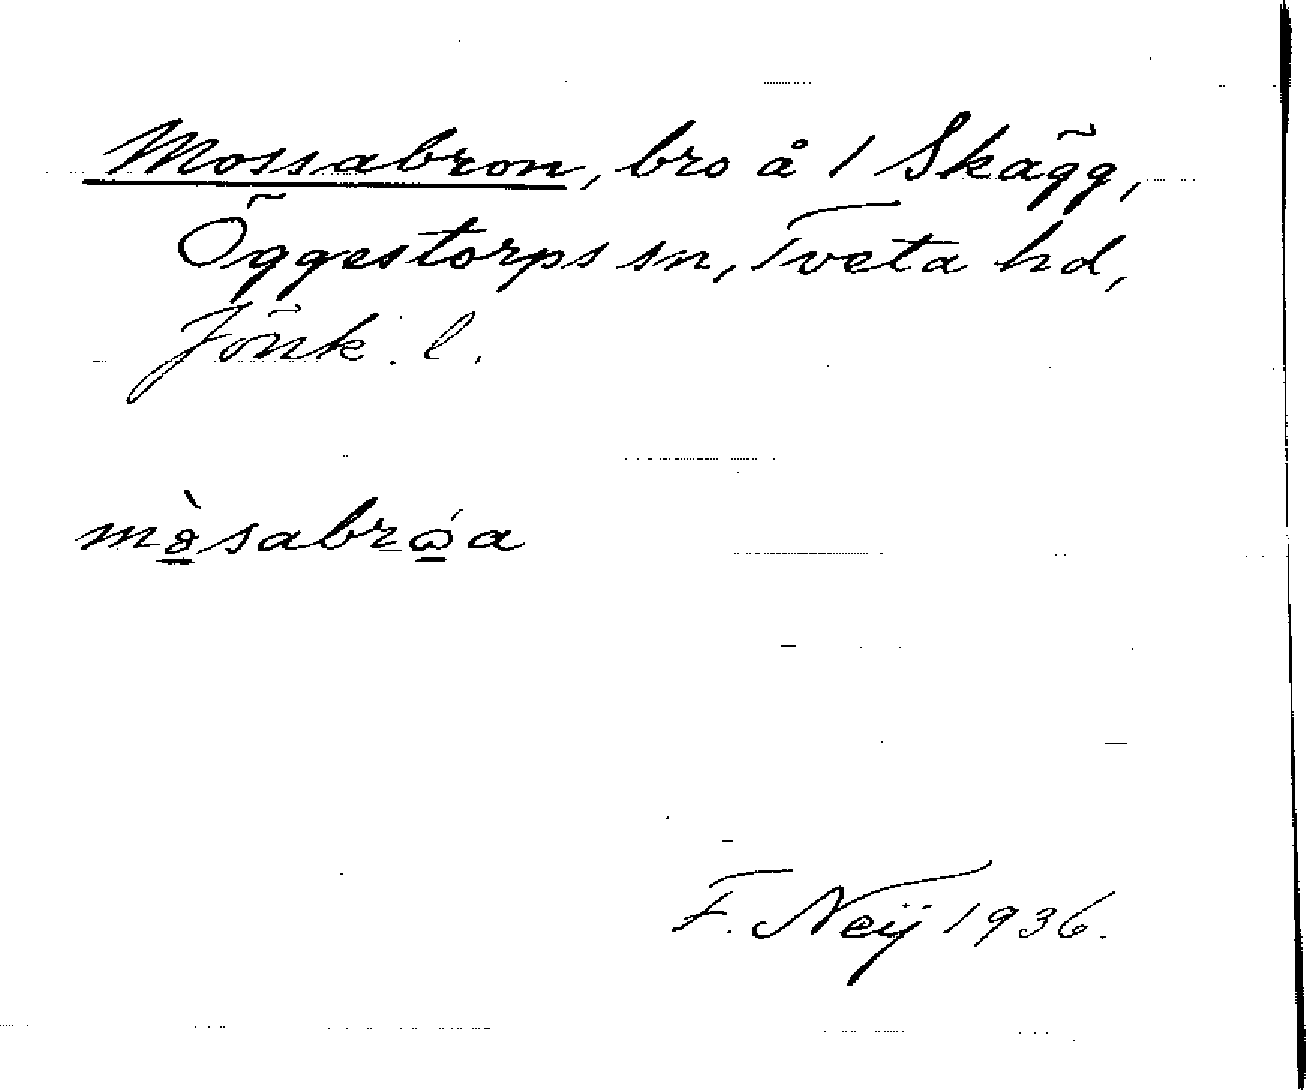 Mossabron, bro å 1 Skägg,
Öggestorps sn, Tveta hd,
Jönk. l.
mòsabrǫ́a
F. Neij 1936.